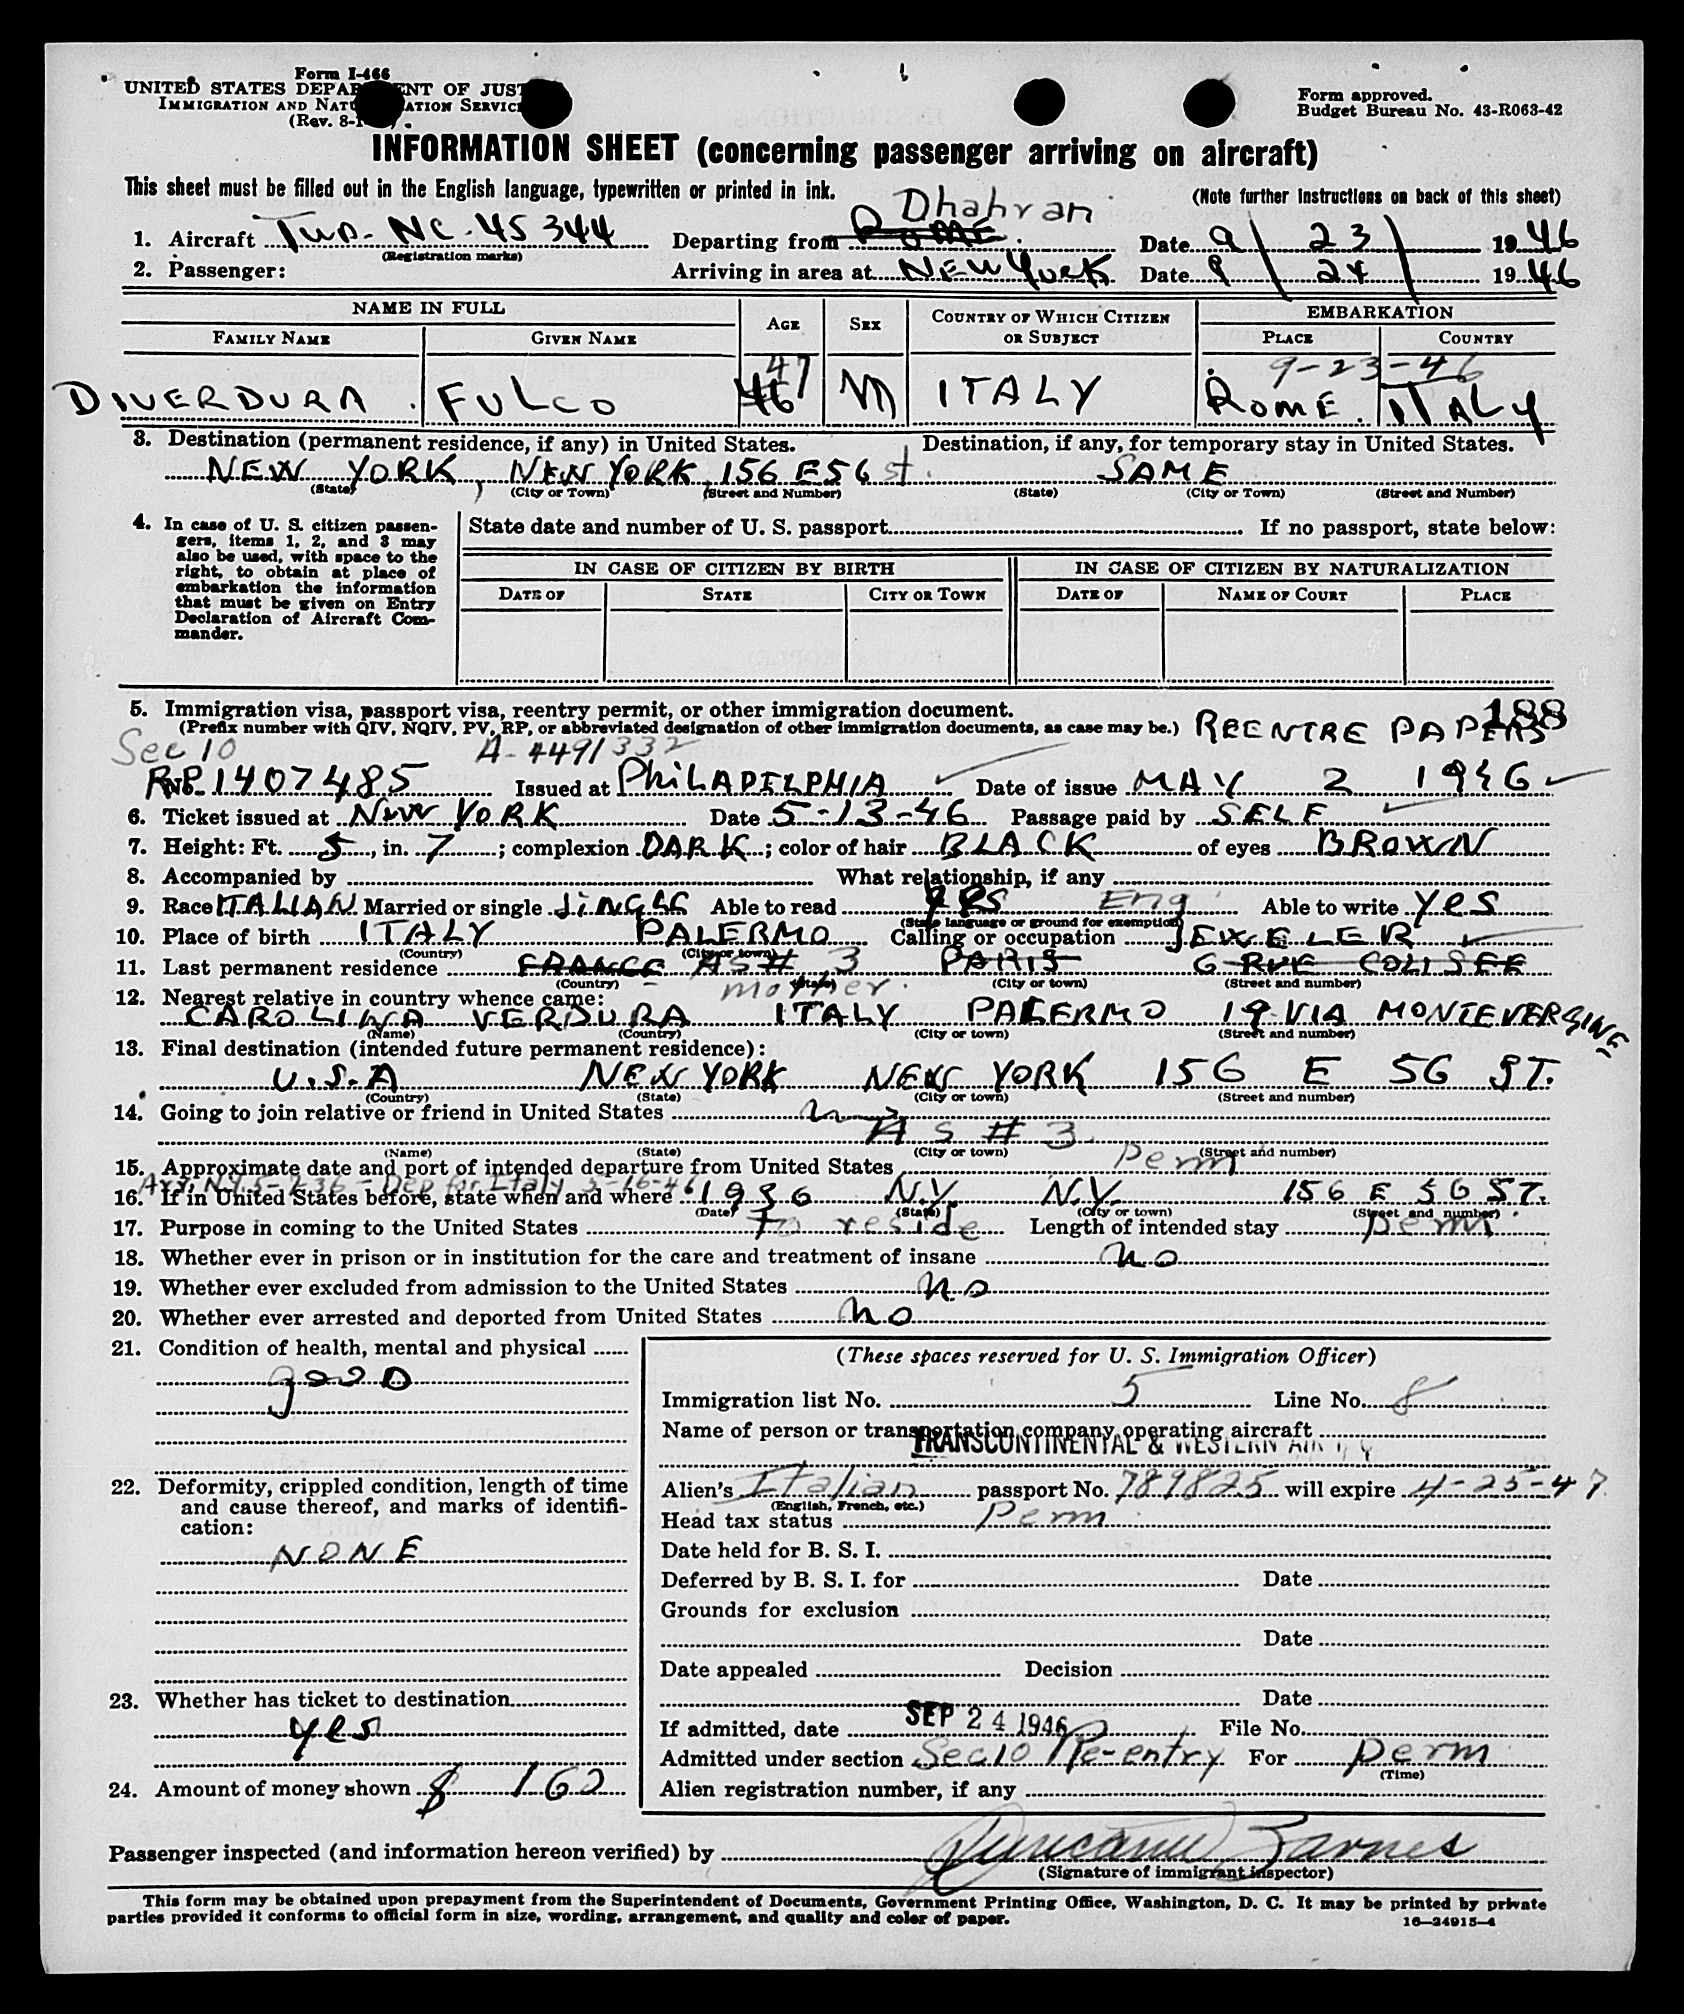 Form I-466
UNITED STATES DEPARTMENT OF JUSTICE
IMMIGRATION AND NATURALIZATION SERVICE
(Rev. 8-1
Form approved.
Budget Bureau No. 43-R063-42
INFORMATION SHEET (concerning passenger arriving on aircraft)
This sheet must be filled out in the English language, typewritten or printed in ink.
(Note further instructions on back of this sheet)
Dhahran
1. Aircraft Twa-NC-45344 Departing from ROME Date 9/23/1946
(Registration marks)
2. Passenger: Arriving in area at NEW YORK Date 9/24/1946
NAME IN FULL AGE SEX COUNTRY OF WHICH CITIZEN OR SUBJECT EMBARKATION
FAMILY NAME GIVEN NAME PLACE COUNTRY
47 9-23-46
DIVERDURA FULCO 46 M ITALY ROME. ITALY
3. Destination (permanent residence, if any) in United States. Destination, if any, for temporary stay in United States.
NEW YORK, NEW YORK, 156 E 56 st. SAME
(State) (City or Town) (Street and Number) (State) (City or Town) (Street and Number)
4. In case of U. S. citizen passen-
gers, items 1, 2, and 3 may
also be used, with space to the
right, to obtain at place of
embarkation the information
that must be given on Entry
Declaration of Aircraft Com-
mander.
State date and number of U. S. passport If no passport, state below:
IN CASE OF CITIZEN BY BIRTH IN CASE OF CITIZEN BY NATURALIZATION
DATE OF STATE CITY OR TOWN DATE OF NAME OF COURT PLACE
5. Immigration visa, passport visa, reentry permit, or other immigration document.
188
(Prefix number with QIV, NQIV, PV, RP, or abbreviated designation of other immigration documents, as case may be.) REENTRE PAPERS
Sec 10 A-4491332
RP No. 1407485 Issued at PHILADELPHIA Date of issue MAY 2 1946
6. Ticket issued at NEW YORK Date 5-13-46 Passage paid by SELF
7. Height: Ft. 5, in. 7; complexion DARK; color of hair BLACK of eyes BROWN
8. Accompanied by What relationship, if any
9. Race ITALIAN Married or single SINGLE Able to read yes Eng Able to write yes
(State language or ground for exemption)
10. Place of birth ITALY PALERMO Calling or occupation JEWELER
(Country) (City or town)
11. Last permanent residence FRANCE AS # 3 PARIS 6 RUE COLISEE
(Country) (State) (City or town) (Street and number)
12. Nearest relative in country whence came: mother.
CAROLINA VERDURA ITALY PALERMO 19 VIA MONTEVERGINE
(Name) (Country) (City or town) (Street and number)
13. Final destination (intended future permanent residence):
U.S.A NEW YORK NEW YORK 156 E 56 ST.
(Country) (State) (City or town) (Street and number)
14. Going to join relative or friend in United States
AS # 3.
(Name) (State) (City or town) (Street and number)
15. Approximate date and port of intended departure from United States Perm
Arr. N.Y. 5-7-36 - Dep for Italy 5-16-46
16. If in United States before, state when and where 1936 N.Y. N.Y. 156 E 56 ST.
(Date) (State) (City or town) (Street and number)
17. Purpose in coming to the United States To reside Length of intended stay perm.
18. Whether ever in prison or in institution for the care and treatment of insane no
19. Whether ever excluded from admission to the United States no
20. Whether ever arrested and deported from United States no
21. Condition of health, mental and physical
gooD
22. Deformity, crippled condition, length of time
and cause thereof, and marks of identifi-
cation:
NONE
23. Whether has ticket to destination
yes
24. Amount of money shown $ 160
(These spaces reserved for U. S. Immigration Officer)
Immigration list No. 5 Line No. 8
Name of person or transportation company operating aircraft
TRANSCONTINENTAL & WESTERN AIR
Alien's Italian passport No. 789825 will expire 4-25-47.
(English, French, etc.)
Head tax status Perm
Date held for B. S. I.
Deferred by B. S. I. for Date
Grounds for exclusion
Date
Date appealed Decision
Date
If admitted, date SEP 24 1946 File No.
Admitted under section Sec 10 Re-entry For perm
(Time)
Alien registration number, if any
Passenger inspected (and information hereon verified) by Barnes
(Signature of immigrant inspector)
This form may be obtained upon prepayment from the Superintendent of Documents, Government Printing Office, Washington, D. C. It may be printed by private
parties provided it conforms to official form in size, wording, arrangement, and quality and color of paper.
16—24915-4